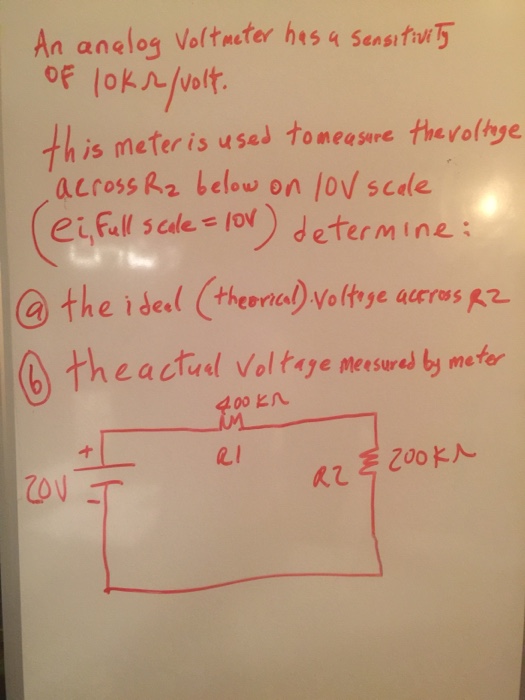 An analog Voltmeter has a sensitivity
OF 10KΩ/volt.
this meter is used to measure the voltage
across R2 below on 10V scale
(ei, Full scale = 10V) determine:
ⓐ the ideal (theorical) voltage across R2
ⓑ the actual Voltage measured by meter
400KΩ
+
R1
R2
200KΩ
20V
-